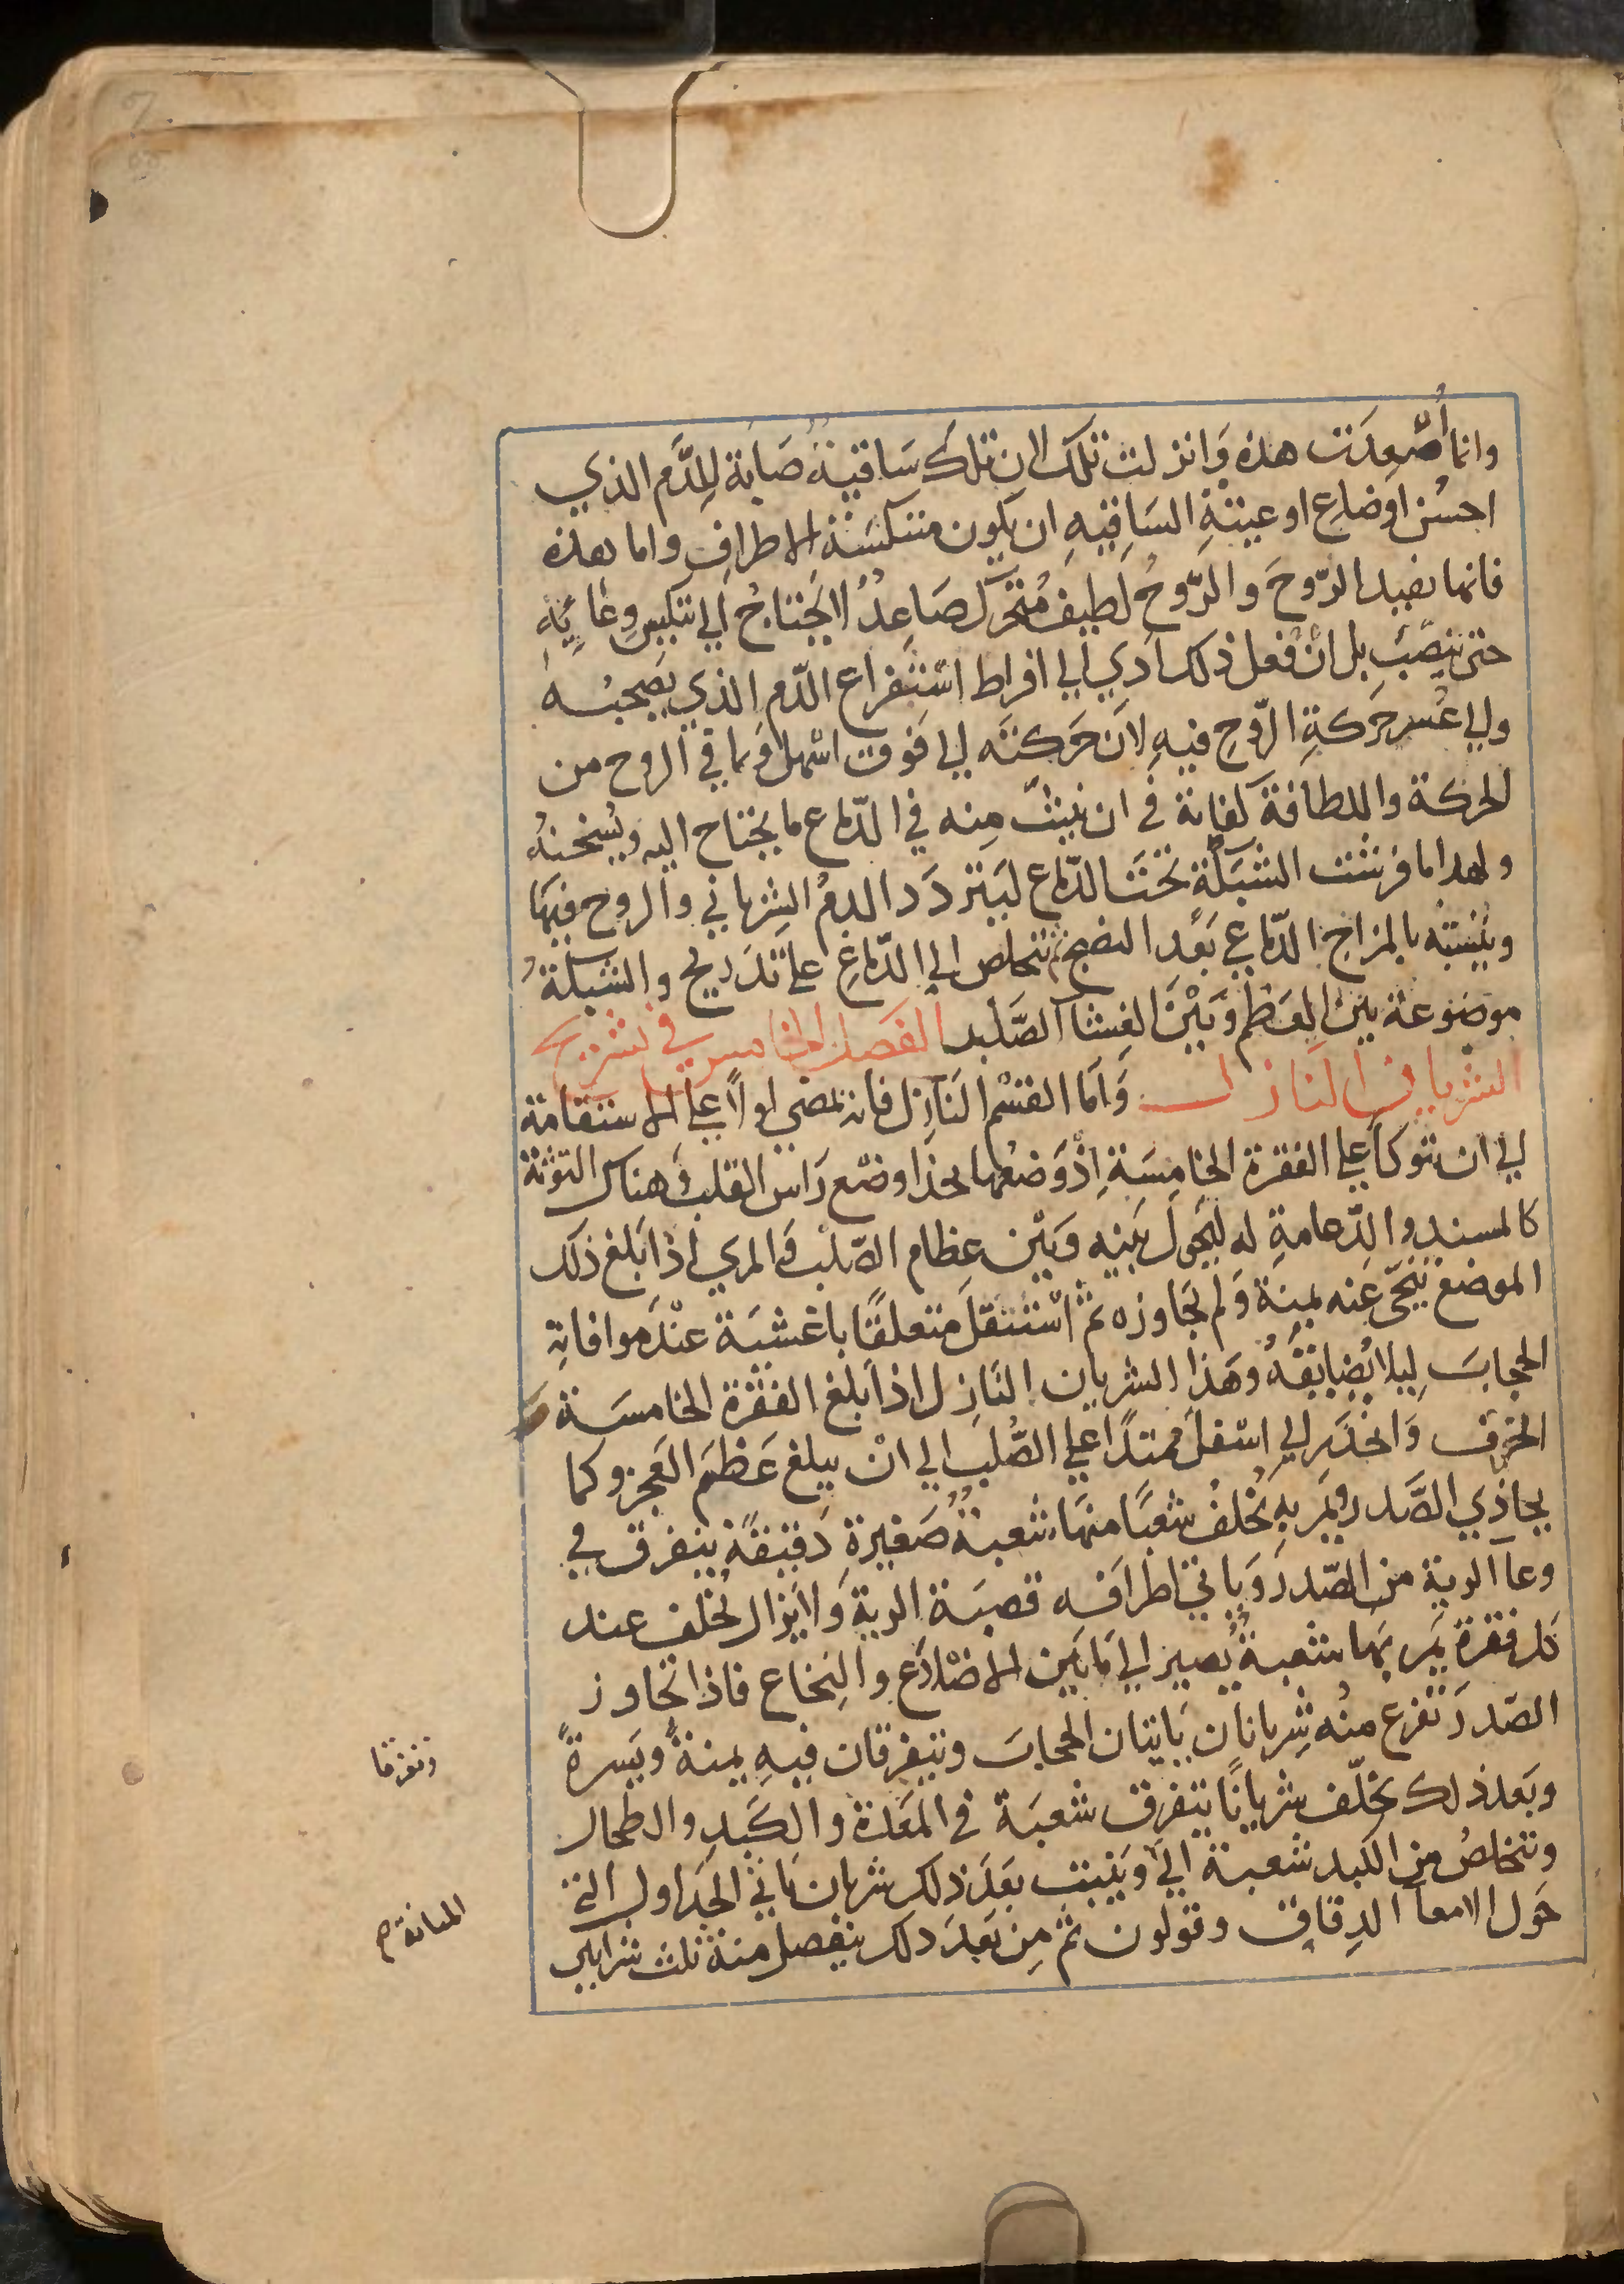 وانما أُصْعِدَت هذه وَانزلت تلكَ لان تلكَ سَاقيةٌ صَابة لِلدَّم الذي
احسُن اوضاع اوعيتةِ السَاقيهِ ان يكون متنكسَة الاطرافِ واما هذه
فانما يفيد الرّوحَ والرّوحُ لطيف مُتحرّك صَاعِدٌ لا يَحتاجُ الي تنكيس وِعَائِهِ
حتى ينصَبّ بل انْ فعل ذلك ادي الي افراط اسْتفراع الدّم الذي يَصحبُه
والي عُسر حَركةِ الرّوح فيهِ لاَن حَركته الي فَوق اسْهل وَما في الروح من
الحركة واللطافة كفاية في ان ينبثّ مِنه في الدّماع ما يحتاح اليه ويُسخنهُ
ولهدا ما فرشت الشبَكة تحتَ الدّماع ليَتردَد الدمُ الشِرياني والروح فيهَا
ويتشبّه بالمزاج الدّماعي بَعْد النضج ثم تتخلص الي الدّماغِ علي تدَريج والشبَكةُ
موضوعة بين العَظم وَبَيْنَ الغِشآ الصَّلب الفَصل الخامس في تشريح
الشريان النازل وَاَما القسْمُ النَازِل فانه يمضي اولاً علي الاستقامة
الي ان يتوكأ علي الفقرة الخامِسَةِ اِذْ وَضعُها بحذا وضع رَاس القلب وَهناك التوثة
كالمسند والدّعامةِ له ليَحول بَينه وَبَيْن عِظام الصّلب وَالمري اذا بَلغ ذلك
الموضع تنحّى عنه يمنة وَلم يجاوزه ثم اسْتنقل متعلقًا باغشيَة عنْدَ موافاتِه
الحجابَ لِيلا يُضايقهُ وهَذا الشريان النَازِل اذا بَلغ الفقرة الخامسَة
انحرف وَانحدَر الي اسْفل ممتدًا علي الصُّلب الي انْ يبلغ عَظمَ العَجز وكما
يحاذِي الصَّدر ويَمر بِهِ يُخلفُ شعبًا منهَا شعبةٌ صَغيرة دَقيقة يتفرق في
وعآ الرية من الصّدر وَياتي اطرَافه قصبَة الرية وَلا يَزال يُخلف عند
كل فقرة يَمر بهَا شعبةٌ يُصير الي مَا بَين الاضلاَع والنِخاع فاذا تجاوز
الصّدر تفرع منْه شِريانان يَاتيَان الحجابَ ويتفرقان فيهِ يمنةً ويَسرةً
وبَعد ذلك يخلّف شريانًا يتفرق شعبَة في المَعدة والكَبدِ والطحال
وتتخلصُ من الكبد شعبة الي وَينبت بعَد ذلك شريان يَاتي الجَداول التي
حَول الامعآ الدِقاق وقولون ثم مِن بَعد دلك ينفصل منة ثلث شرايين
وتفرقا
المثانة صح